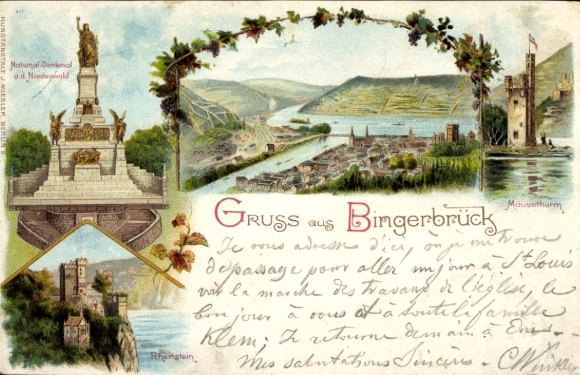 KUNSTANSTALT J. MIESLER, BERLIN S.
National-Denkmal
a. d. Niederwald
Mäusethurm
Gruss aus Bingerbrück
Rheinstein
Je vous adresse d'ici, où je me trouve
de passage pour aller un jour à St Louis
voir la marche des travaux de l'église, le
bonjour à vous et à toute la famille
Klem; Je retourne demain à Ems.
Mes salutations Sincères. C Winkler